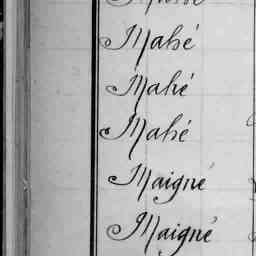 Mahé
Mahé
Mahé
Maigné
Maigné